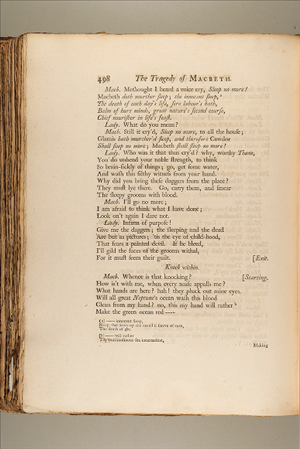 498 The Tragedy of MACBETH.
Macb. Methought I heard a voice cry, Sleep no more!
Macbeth doth murther sleep; the innocent sleep,
The death of each day's life, sore labour's bath,
Balm of hurt minds, great nature's second course,
Chief nourisher in life's feast.
Lady. What do you mean?
Macb. Still it cry'd, Sleep no more, to all the house;
Glamis hath murther'd sleep, and therefore Cawdor
Shall sleep no more; Macbeth shall sleep no more!
Lady. Who was it that thus cry'd? why, worthy Thane,
You do unbend your noble strength, to think
So brain-sickly of things; go, get some water,
And wash this filthy witness from your hand.
Why did you bring these daggers from the place?
They must lye there. Go, carry them, and smear
The sleepy grooms with blood.
Macb. I'll go no more;
I am afraid to think what I have done;
Look on't again I dare not.
Lady. Infirm of purpose!
Give me the daggers; the sleeping and the dead
Are but as pictures; 'tis the eye of child-hood,
That fears a painted devil. If he bleed,
I'll gild the faces of the grooms withal,
For it must seem their guilt. [Exit.
Knock within.
Macb. Whence is that knocking? [Starting.
How is't with me, when every noise appalls me?
What hands are here? hah! they pluck out mine eyes.
Will all great Neptune's ocean wash this blood
Clean from my hand? no, this my hand will rather
Make the green ocean red ——
innocent sleep,
Sleep that
The death of
will rather
The multitudinous sea incarnadine,
Making